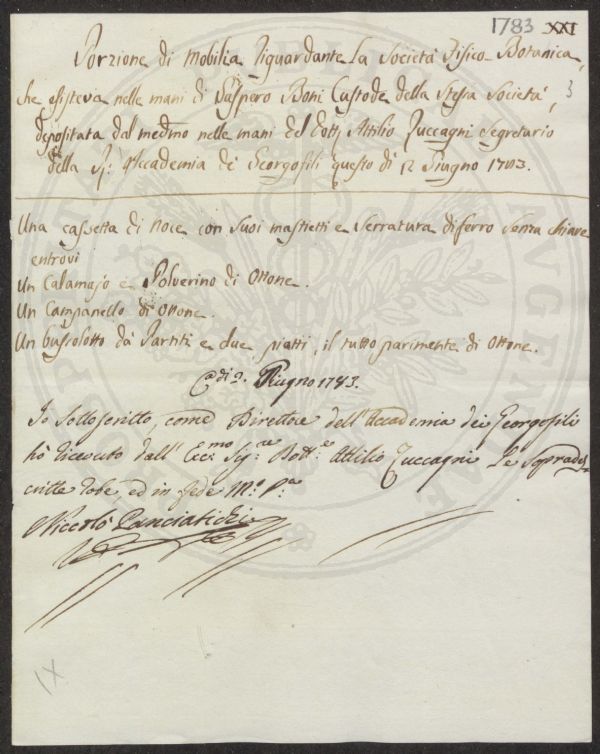 1783 XXI
Porzione di Mobilia riguardante la Società Fisico-Botanica,
che esisteva nelle mani di Gaspero Boni Custode della Stessa Società, 3
depositata dal medmo nelle mani del Dott. Attilio Zuccagni Segretario
della R: Accademia dei Georgofili questo dì 12 Giugno 1783.
Una cassetta di Noce con suoi mastietti e Serratura di ferro senza chiave
entrovi
Un Calamajo e Polverino di Ottone.
Un Campanello di Ottone.
Un bussolotto da Partiti e due piatti, il tutto parimente di Ottone.
Giugno 1783.
Io Sottoscritto, come Direttore dell'Accademia dei Georgofili
hò ricevuto dall' Ecc:mo Sig:re Dott:re Attilio Zuccagni le Soprades-
critte robe, ed in fede M:o P:a
Niccolò Panciatichi
IX
OSPITA PVBLICAE AVGENTAE